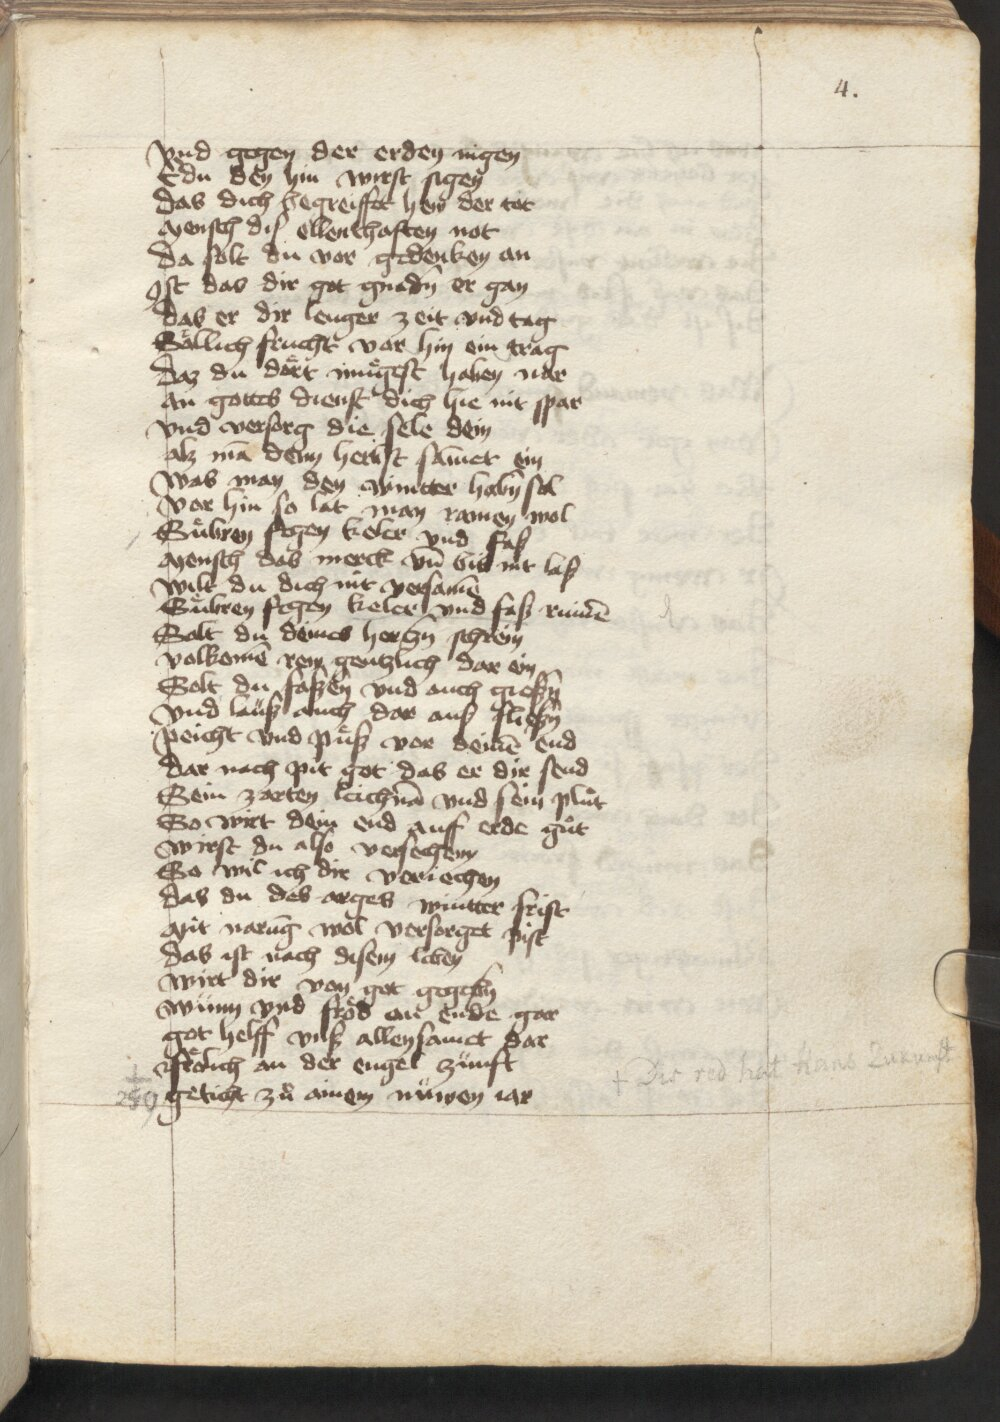 4.
Vnd gegen der erden nigen
E du den hin wirst sigen
Das dich begreiffet hew der tot
Mensch diß ellenthaften not
Da solt du vor gedenken an
Ist das dir got gnadn̄ er gan
Das er dir lenger zeit vnd tag
Sällich frucht vor hin ein trag
Daz du dört mügest haben nar
An gottes dienst dich hie nit spar
Vnd versorg die sele dein
Alz mā denn herbst samet ein
Was man den wintter habn̄ sol
Vor hin so lat man ramen wol
Sübren fegen keler vnd faß
Mensch das merck vn̄ biß nit laß
Wilt du dich nit versamē
Sübren fegen keler vnd faß rumē
Solt du deines hertzn̄ schrein
Volkomē rein gentzlich dar ein
Solt du faßen vnd auch gießn̄
Vnd lauß auch dar auß fließn̄
Peicht vnd puß vor deinē end
Dar nach pit got das er dir send
Sein zarten leichnā vnd sein plůt
So wirt dein end auff erde gůt
Wirst du also versechen
So wil ich dir veriechen
Das du des arges wintter frist
Mit narūg wol versorget pist
Das ist nach disem leben
Wirt dir von got gegebn̄
Wünn vnd fröd an ende gar
Got helff vnß allensamet dar
Frölich an der engel zünft
Geticht zů ainem nüwen iar
+ Die red hat Hans Zukunft
259